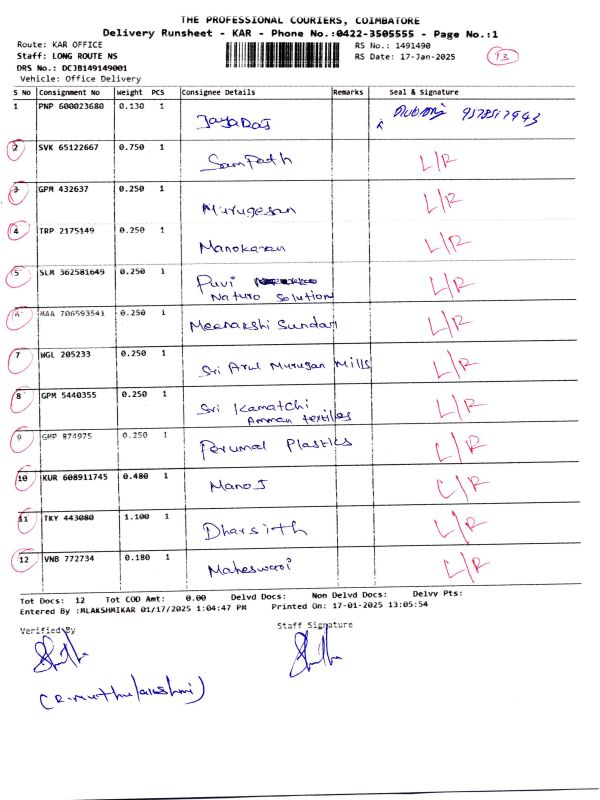 THE PROFESSIONAL COURIERS, COIMBATORE
Delivery Runsheet - KAR - Phone No.:0422-3505555 - Page No.:1
Route: KAR OFFICE
Staff: LONG ROUTE NS
DRS No.: DCJB149149001
Vehicle: Office Delivery
RS No.: 1491490
RS Date: 17-Jan-2025
13
S No Consignment No Weight PCS Consignee Details Remarks Seal & Signature
1 PNP 600023680 0.130 1 JayaRaj
2 SVK 65122667 0.750 1 Sampath L/R
3 GPM 432637 0.250 1 Murugesan L/R
4 TRP 2175149 0.250 1 Manokaran L/R
5 SLM 362581649 0.250 1 Puvi L/R
Naturo Solution
6 MAA 706593541 0.250 1 Meenakshi Sundar L/R
7 WGL 205233 0.250 1 Sri Arul Murugan Mills L/R
8 GPM 5440355 0.250 1 Sri Kamatchi L/R
Amman textiles
9 GMP 874975 0.250 1 Perumal Plastics L/R
10 KUR 608911745 0.480 1 Manoj L/R
11 TKY 443080 1.100 1 Dharsith L/R
12 VNB 772734 0.180 1 Maheswari L/R
Tot Docs: 12 Tot COD Amt: 0.00 Delvd Docs: Non Delvd Docs: Delvy Pts:
Entered By :MLAKSHMIKAR 01/17/2025 1:04:47 PM Printed On: 17-01-2025 13:05:54
Verified By
Staff Signature
(R.muthulakshmi)